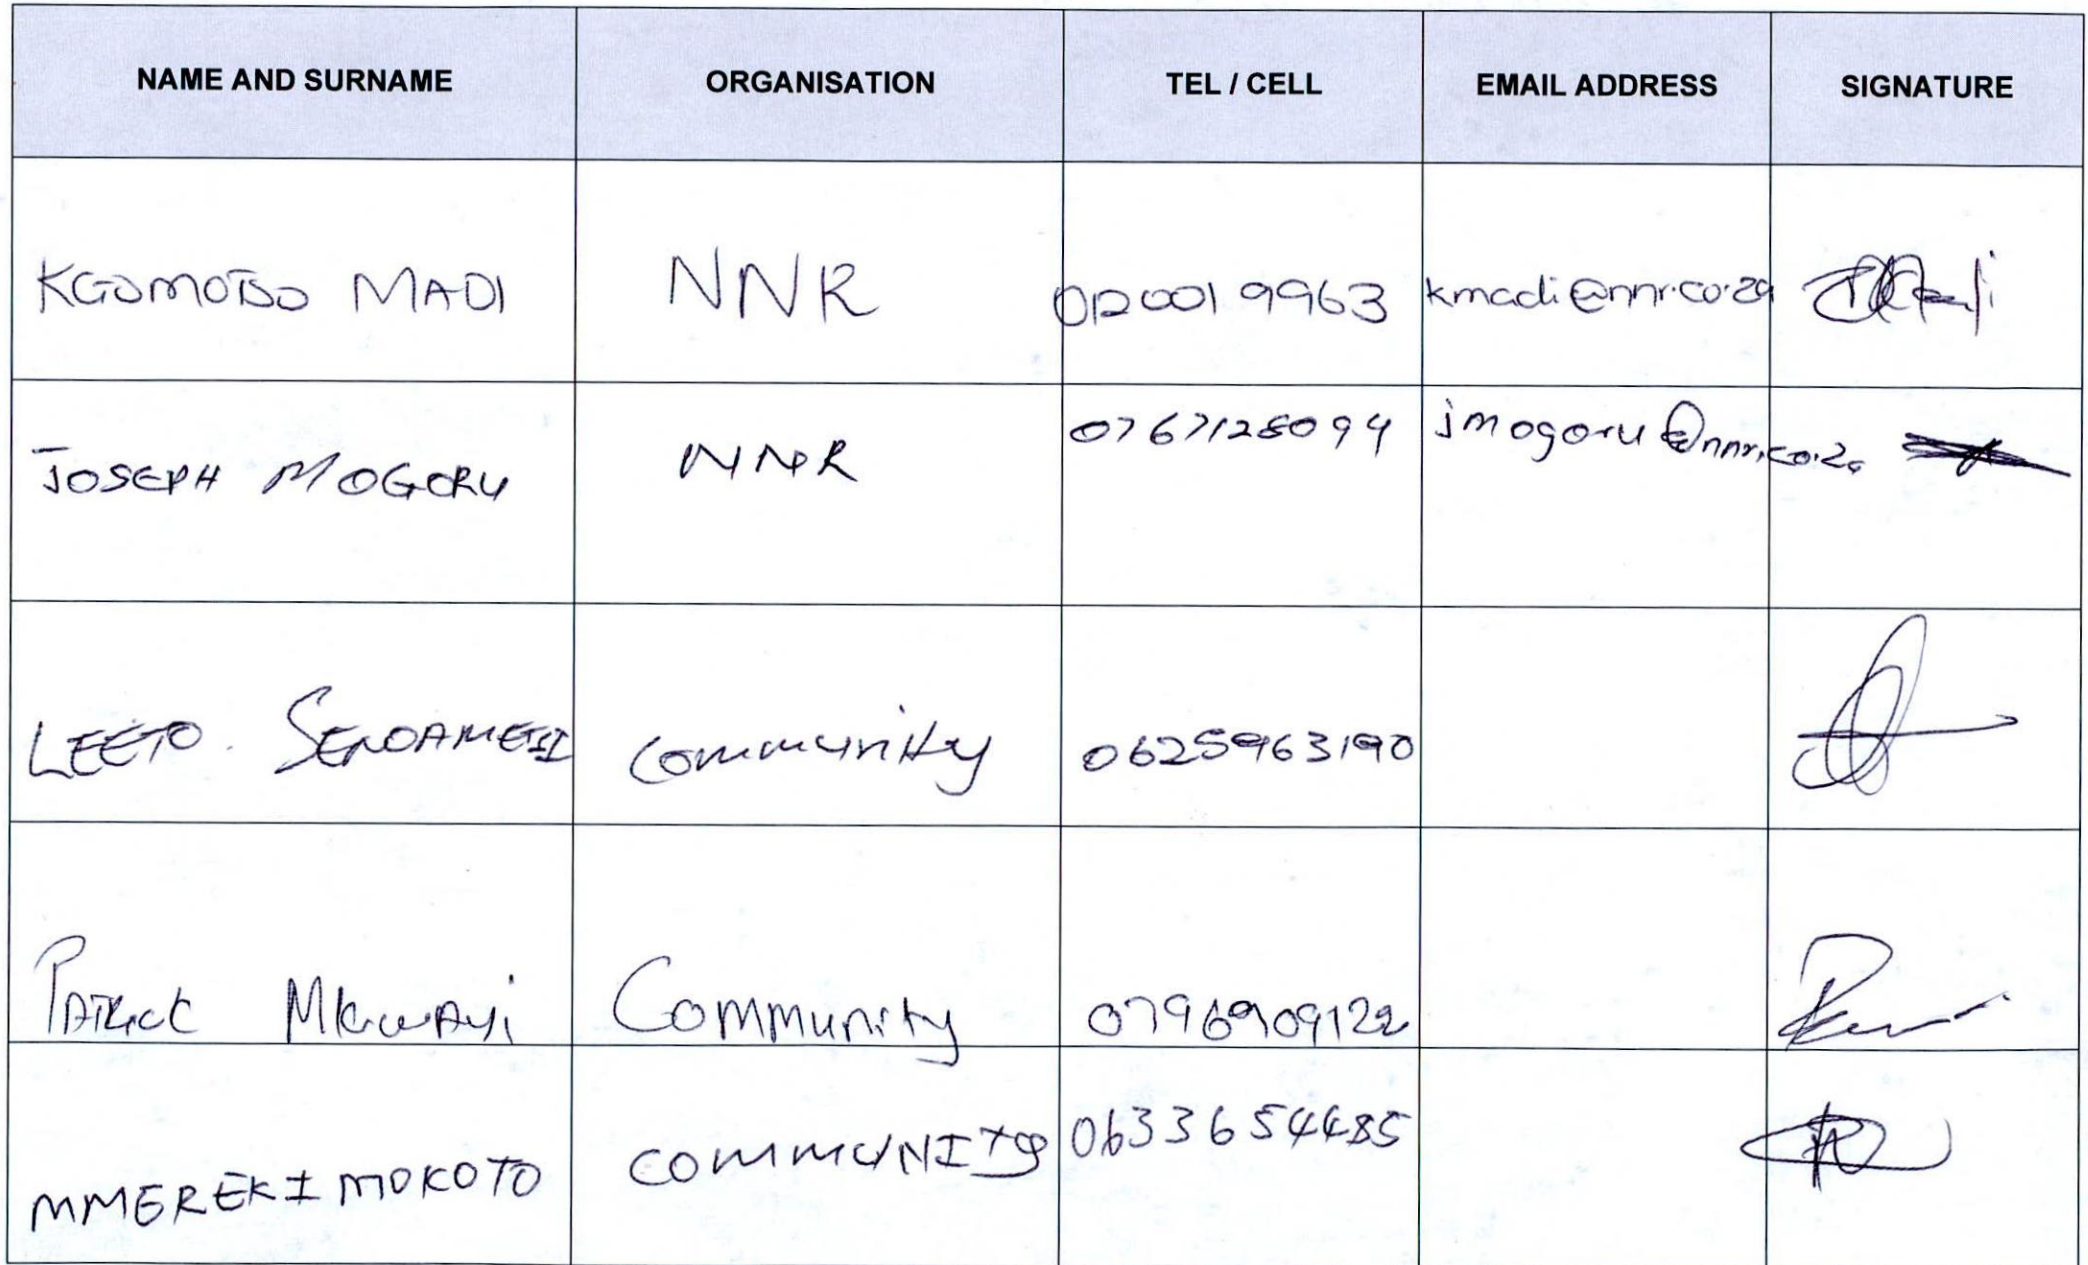 NAME AND SURNAME ORGANISATION TEL / CELL EMAIL ADDRESS SIGNATURE
KGOMOTSO MADI NNR 0120019963 kmadi@nnr.co.za
JOSEPH MOGORU NNR 0767128094 jmogoru@nnr.co.za
LEETO. community 0625963190
PATRICK Mkwayi Community 0796909122
MMEREKI MOKOTO COMMUNITY 0633654485